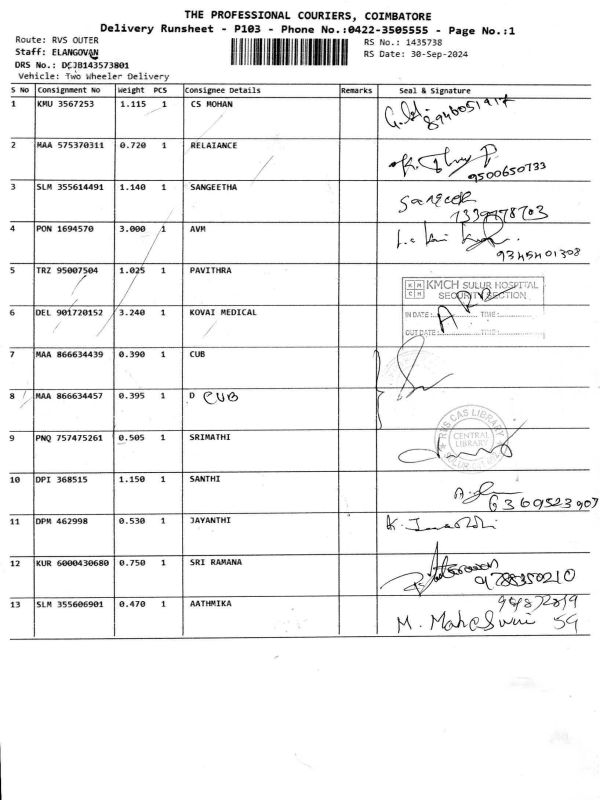 THE PROFESSIONAL COURIERS, COIMBATORE
Delivery Runsheet - P103 - Phone No.:0422-3505555 - Page No.:1
Route: RVS OUTER
Staff: ELANGOVAN
DRS No.: DCJB143573801
Vehicle: Two Wheeler Delivery
RS No.: 1435738
RS Date: 30-Sep-2024
S No Consignment No Weight PCS Consignee Details Remarks Seal & Signature
1 KMU 3567253 1.115 1 CS MOHAN
2 MAA 575370311 0.720 1 RELAIANCE
9500650733
3 SLM 355614491 1.140 1 SANGEETHA
4 PON 1694570 3.000 1 AVM
9345401308
5 TRZ 95007504 1.025 1 PAVITHRA
KMCH SULUR HOSPITAL
SECURITY SECTION
6 DEL 901720152 3.240 1 KOVAI MEDICAL
IN DATE: TIME:
OUT DATE: TIME:
7 MAA 866634439 0.390 1 CUB
8 MAA 866634457 0.395 1 D CUB
9 PNQ 757475261 0.505 1 SRIMATHI
RVS CAS LIBRARY
CENTRAL
LIBRARY
10 DPI 368515 1.150 1 SANTHI
6369523907
11 DPM 462998 0.530 1 JAYANTHI
12 KUR 6000430680 0.750 1 SRI RAMANA
13 SLM 355606901 0.470 1 AATHMIKA
M. Maheswari 59